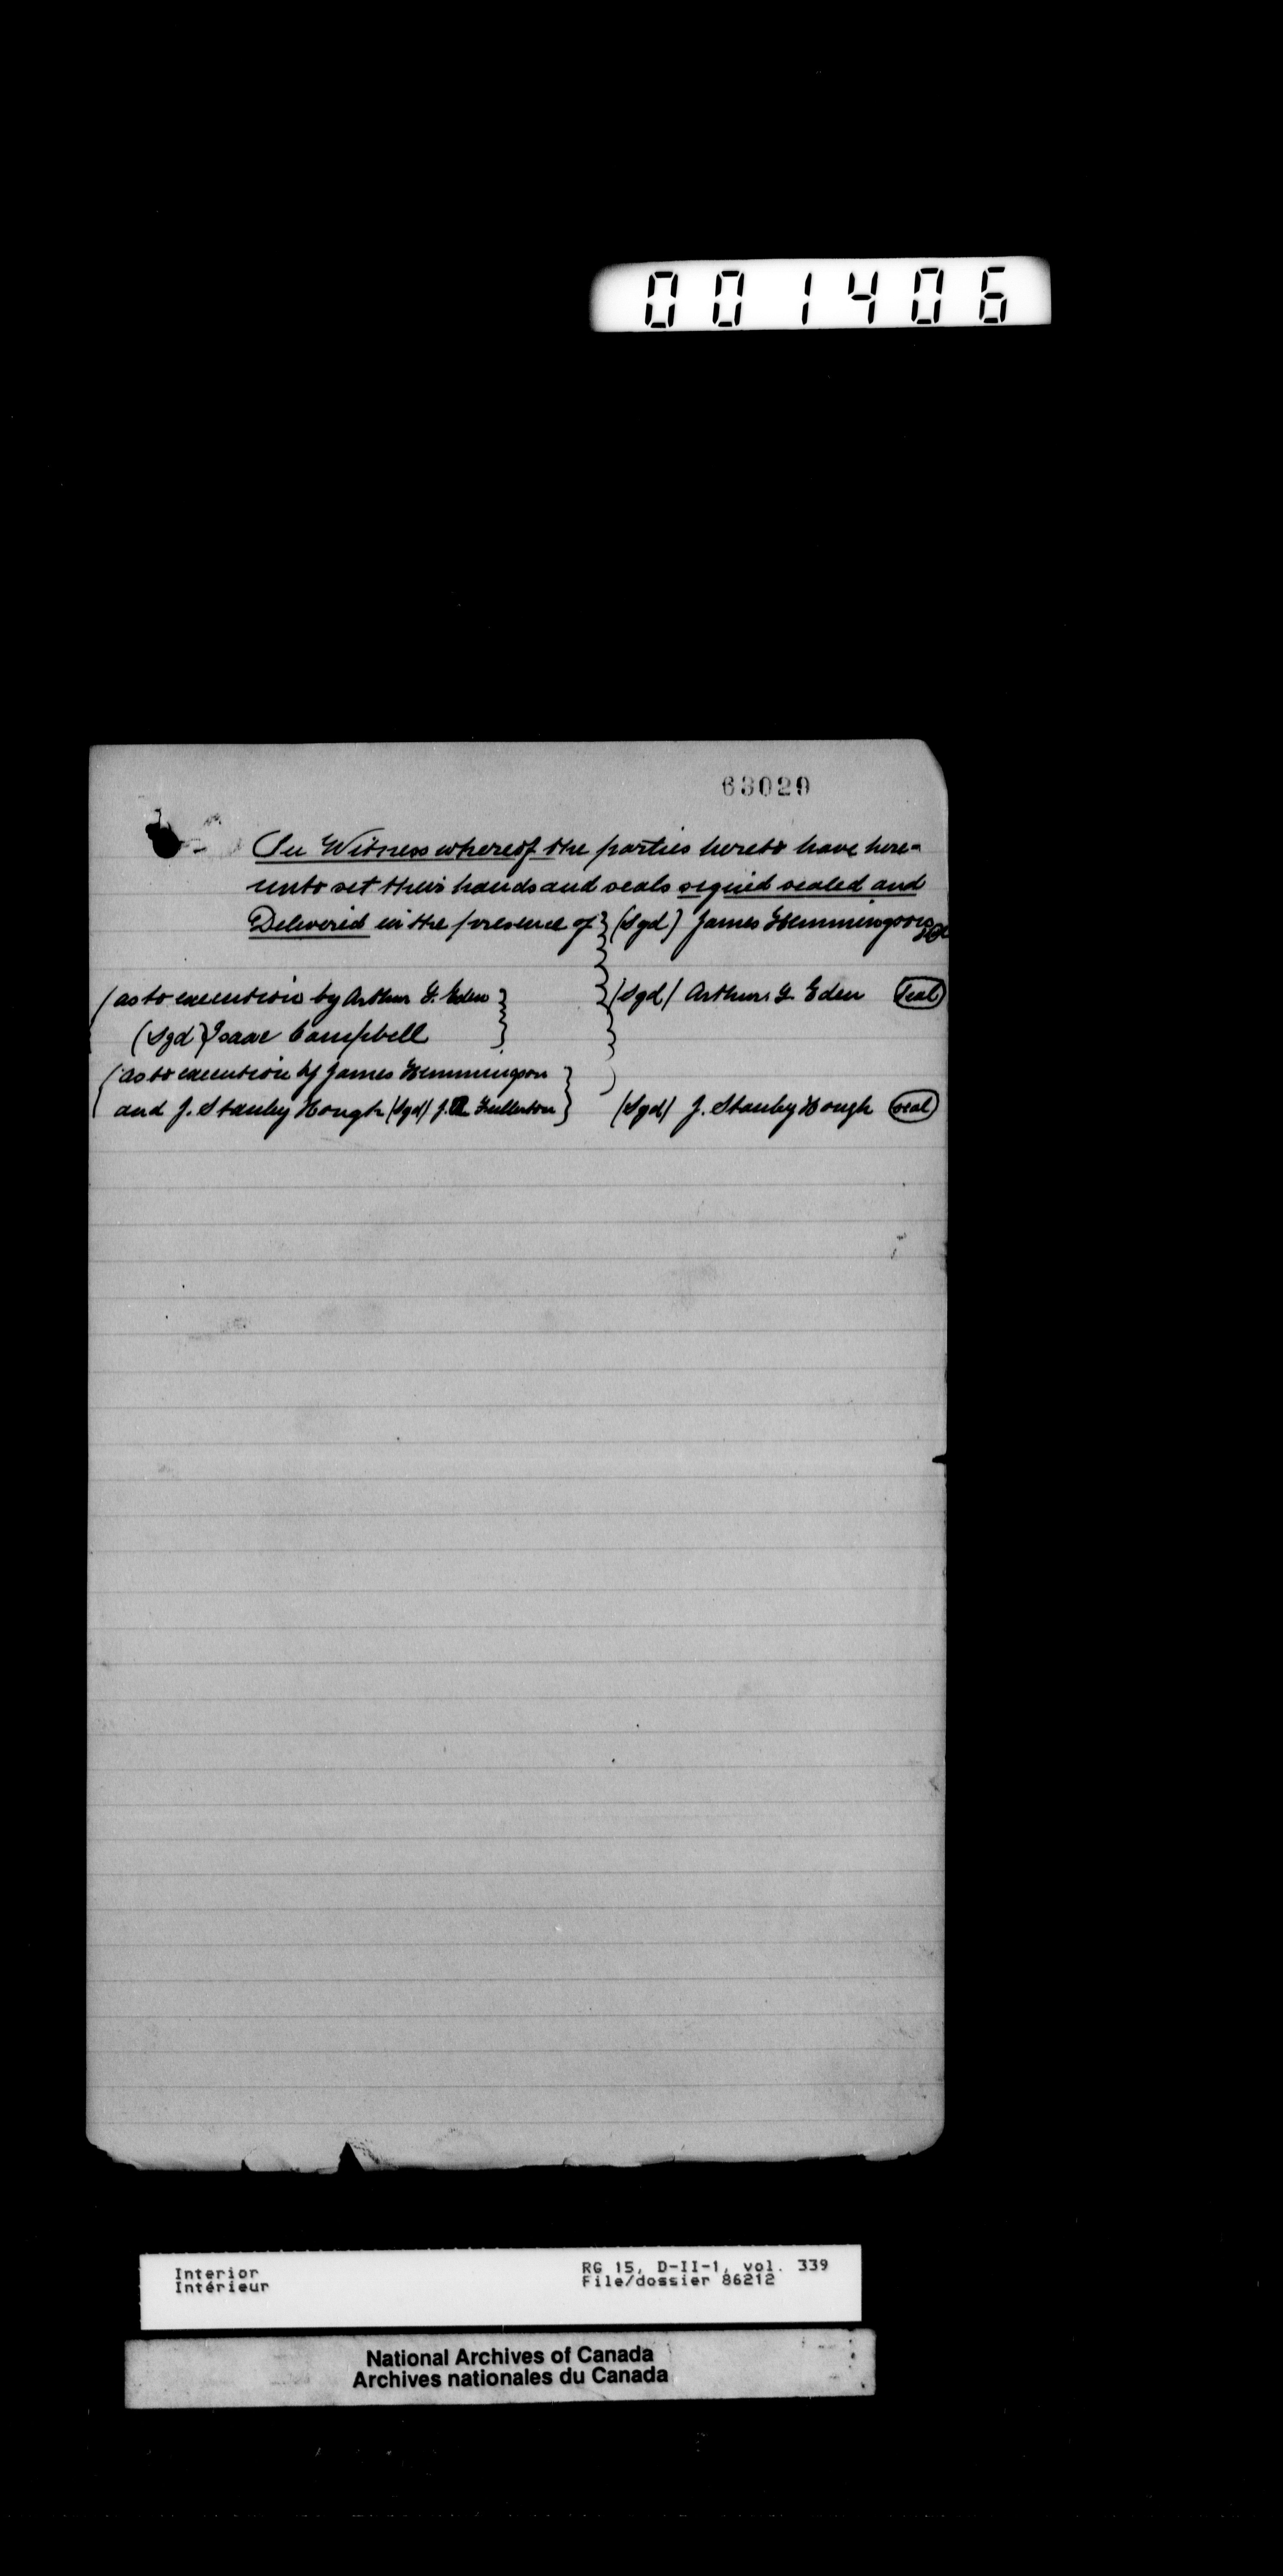 001406
63029
In Witness whereof the parties hereto have here=
unto set their hands and seals signed sealed and
Delivered in the presence of } (Sgd) James Hemmingson seal
(as to execution by Arthur G. Eden } (Sgd) Arthur G. Eden seal
(Sgd) Isaac Campbell }
(as to execution by James Hemmingson
and J. Stanley Hough (Sgd) J. Fullerton } (Sgd) J. Stanley Hough seal
Interior RG 15, D-II-1, vol. 339
Intérieur File/dossier 86212
National Archives of Canada
Archives nationales du Canada